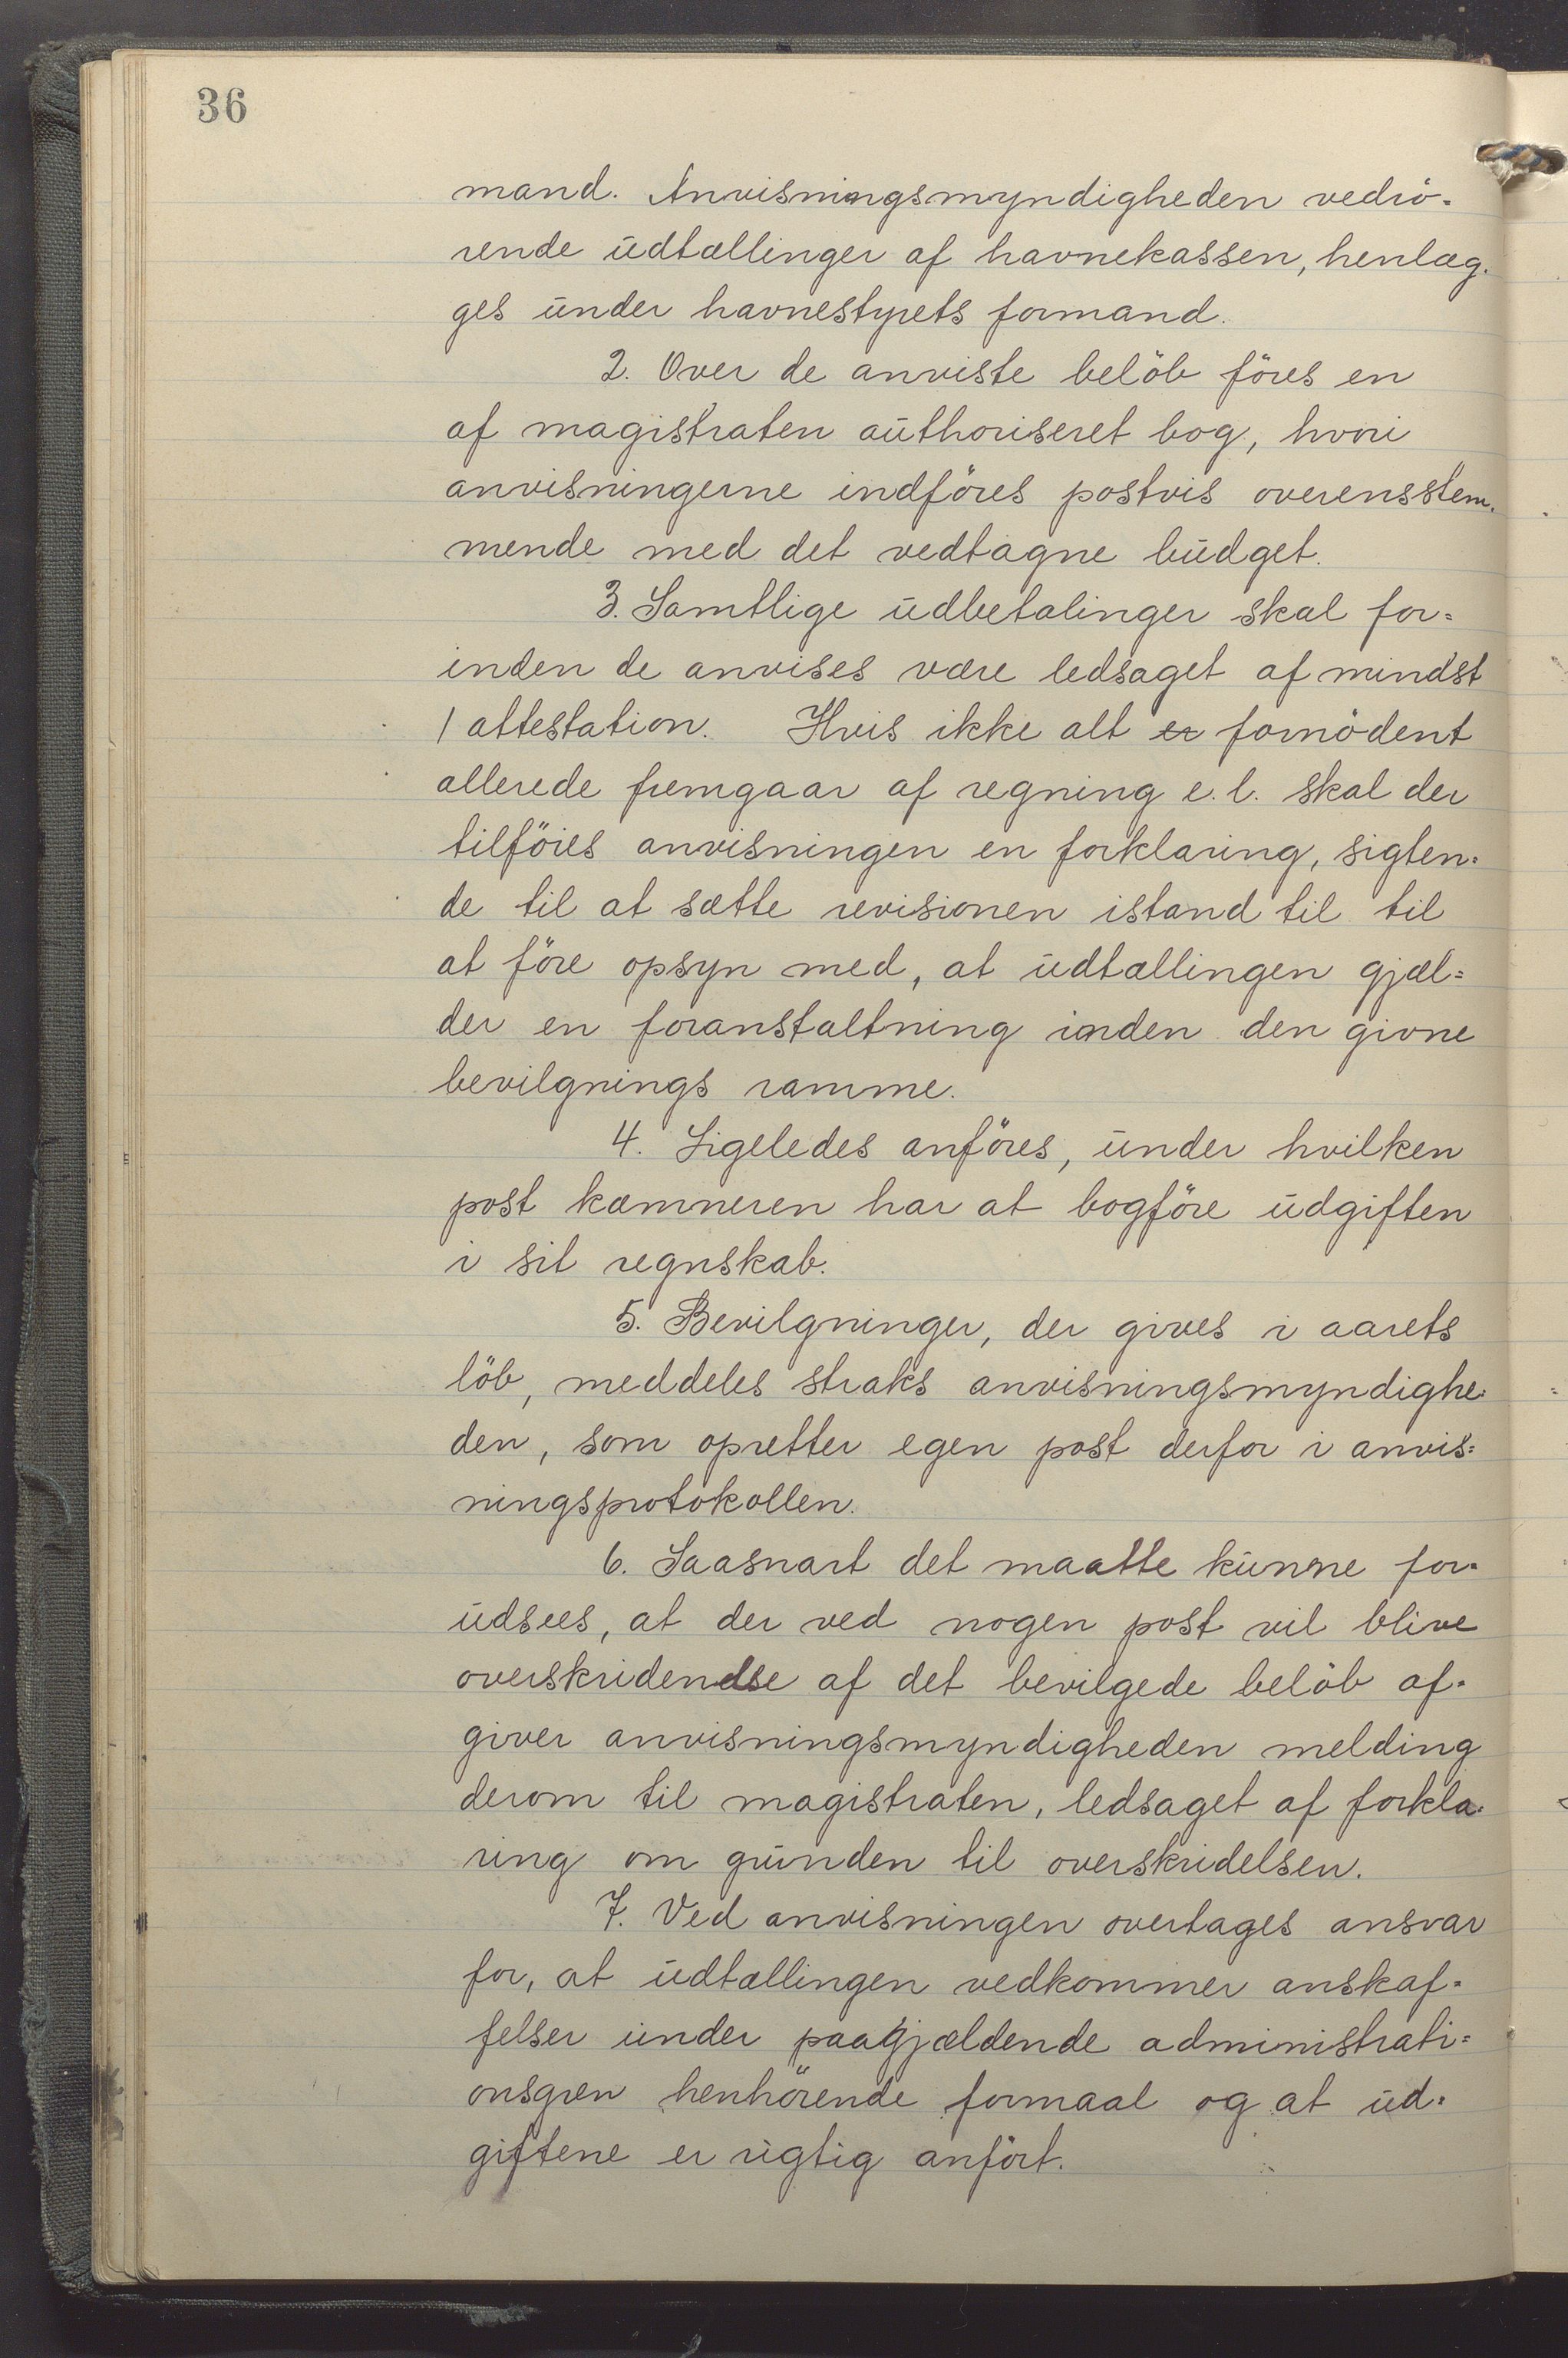 36
mand. Anvisningsmyndigheden vedrö-
rende udtællinger af havnekassen, henlæg-
ges under havnestyrets formand.
2. Over de anviste belöb föres en
af magistraten authoriseret bog, hvori
anvisningerne indföres postvis overensstem-
mende med det vedtagne budget.
3. Samtlige udbetalinger skal for=
inden de anvises være ledsaget af mindst
1 attestation. Hvis ikke alt er fornödent
allerede fremgaar af regning e.l. skal der
tilföies anvisningen en forklaring, sigten=
de til at sætte revisionen istand til til
at före opsyn med, at udtællingen gjæl=
der en foranstaltning inden den givne
bevilgnings ramme.
4. Ligeledes anföres, under hvilken
post kæmneren har at bogföre udgiften
i sit regnskab.
5. Bevilgninger, der gives i aarets
löb, meddeles straks anvisningsmyndighe=
den, som opretter egen post derfor i anvis=
ningsprotokollen.
6. Saasnart det maatte kunne for=
udsees, at der ved nogen post vil blive
overskridendse af det bevilgede belöb af=
giver anvisningsmyndigheden melding
derom til magistraten, ledsaget af forkla=
ring om grunden til overskridelsen.
7. Ved anvisningen overtages ansvar
for, at udtællingen vedkommer anskaf=
felser under paagjældende administrati=
onsgren henhörende formaal og at ud=
giftene er rigtig anfört.